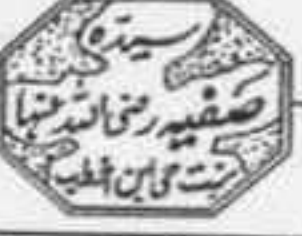 سیدہ
صفیہ رضی اللہ عنہا
بنت حی ابن اخطب